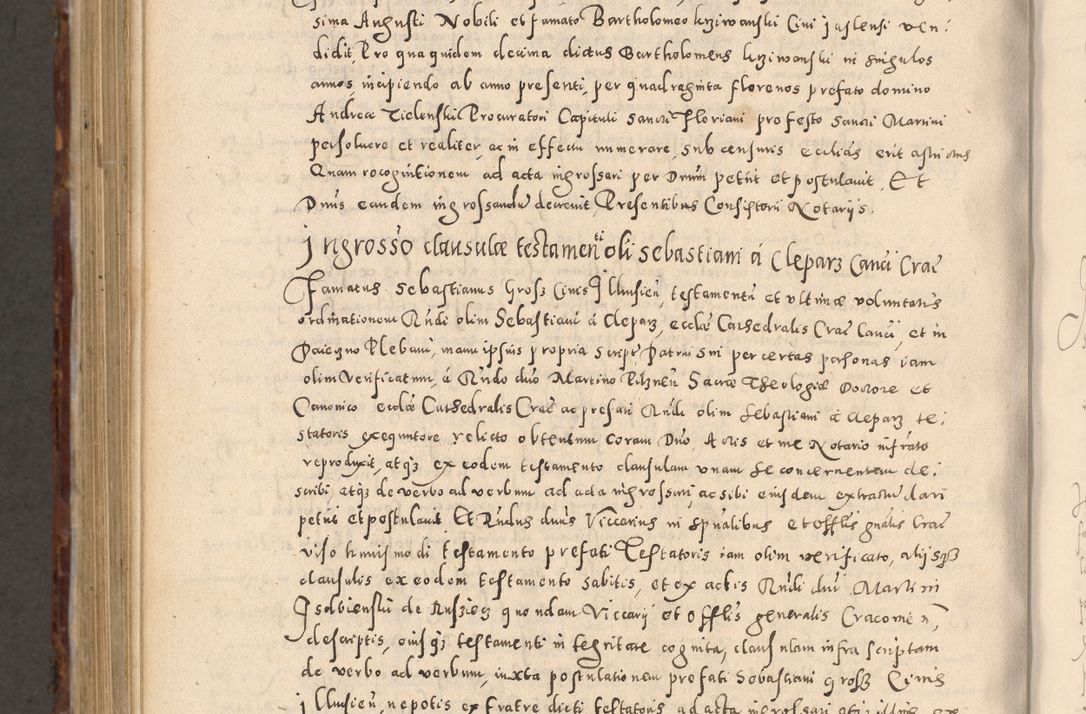 sima Augusti Nobili et famato Bartholomeo krziwanski Civi jaslensi ven:
didit, Pro qua quidem decima dictus Bartholomeus krziwanski in singulos
annos, incipiendo ab anno presenti, per quadraginta florenos prefato domino
Andreæ Zielenski Procuratori Capituli Sancti Floriani pro festo Sancti Martini
persolvere et realiter, ac in effectu numerare, sub censuris ecclīās erit astrictus
Quam recognitionem ad acta ingrossari per Dnum petiit et postulavit, Et
Dnūs eandem ingrossandū decrevit, Presentibus Consistorii Notarijs.
jngrosso clausulæ testamenti oli Sebastiani á Clepars Canci Crac
Famatus Sebastianus Gross Civis Illusien̄, testamenti et ultimæ voluntatis
ordinationem Rndi olim Sebastiani á Clepars, ecclæ Cathedralis Crac Canci, et in
Plebani, manu ipsius propria script Patrui sui per certas personas iam
olim verificatum, á Rndo dno Martino Pilznen̄ Sacræ Theologiæ Doctore et
Canonico ecclæ Cathedralis Crac ac prefati Rndi olim Sebastiani á Clepars te:
statoris exequutore relicto obtentum coram Dno, Actis et me Notario infrato
reproduxit, atq3 ex eodem testamento clausulam unam se concernentem de:
scribi, etq3 de verbo ad verbum ad acta ingrossari, ac sibi eiusdem extractum dari
petiit et postulavit Et Rndus dnus Viccarius in spūalibus et offlīs gnalis Crac
viso huiusmodi testamento prefati Testatoris iam olim verificato, alijsq3
clausulis ex eodem testamento habitis, et ex actis Rndi dni Martini
Isdbienski de Rusziec quondam Viccarij et offlīs generalis Cracovien̄,
descriptis, eiusq3 testamenti integritate cognita, clausulam infra scriptam
de verbo ad verbum, iuxta postulationem prefati Sebastiani gross Civis
jllusien̄, nepotis ex fratre dicti testatoris, ad acta ingrossari